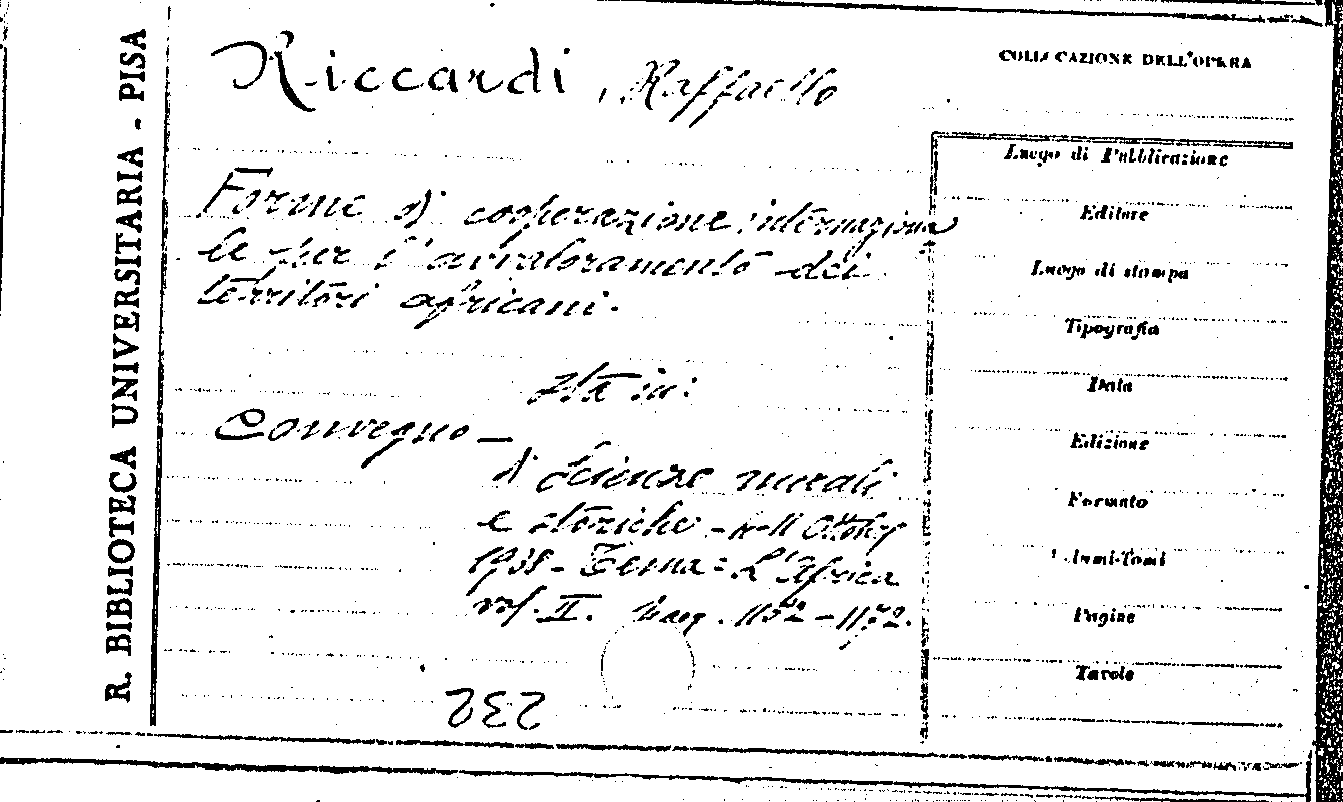 R. BIBLIOTECA UNIVERSITARIA - PISA
Riccardi, Raffaello
COLLOCAZIONE DELL'OPERA
Forme di cooperazione internaziona
le per l'avvaloramento dei
territori africani.
Sta in:
Convegno -
di Scienze morali
e storiche - 4-11 Ottobre
1938 - Tema = L'Africa
vol. II. pag. 1152 - 1172.
232
Luogo di Pubblicazione
Editore
Luogo di stampa
Tipografia
Data
Edizione
Formato
Volumi-Tomi
Pagine
Tavole